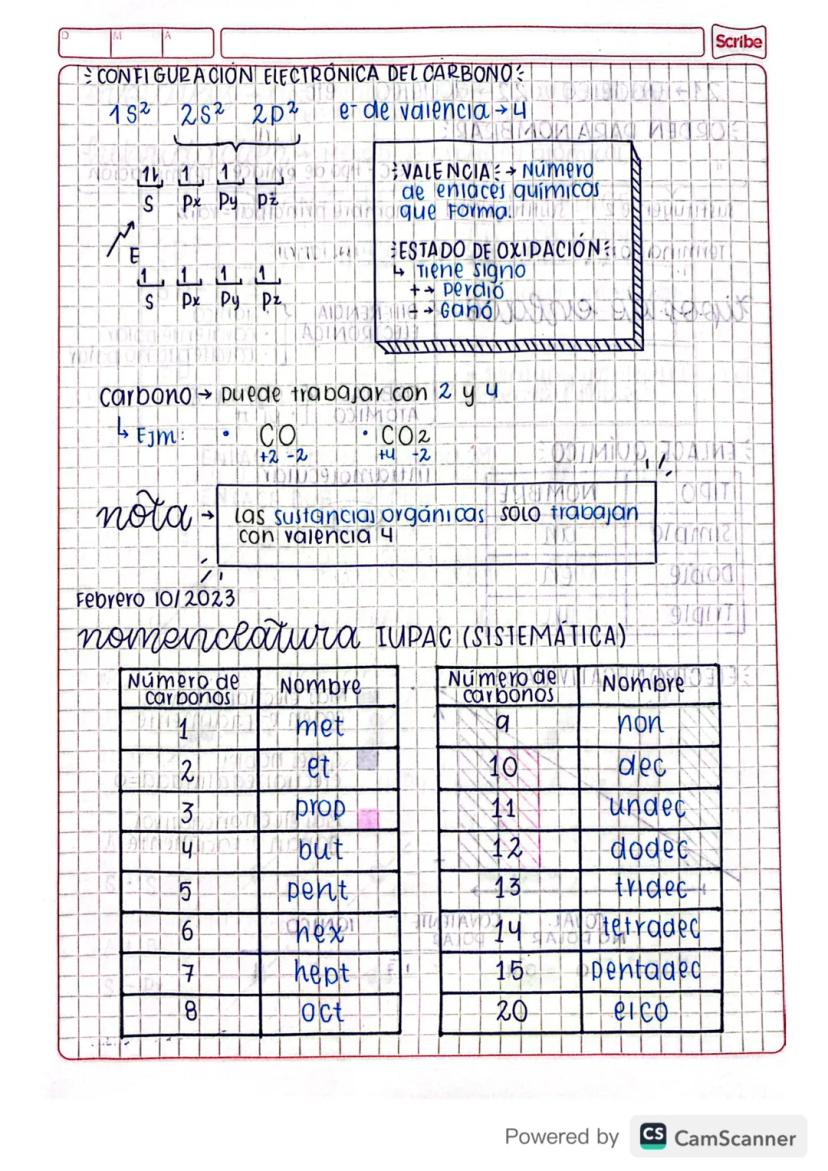 D M A
Scribe
CONFIGURACIÓN ELECTRÓNICA DEL CARBONO:
1S² 2S² 2P² e- de valencia → 4
1l 1 1
S Px Py Pz
E
1 1 1 1
S Px Py Pz
VALENCIA: → Número
de enlaces químicos
que Forma.
ESTADO DE OXIDACIÓN:
↳ Tiene signo
+ → Perdió
- → Ganó
Carbono → puede trabajar con 2 y 4
↳ Ejm: • CO • CO2
+2 -2 +4 -2
nota → Las sustancias orgánicas solo trabajan
con valencia 4
Febrero 10/2023
nomenclatura IUPAC (SISTEMÁTICA)
Número de carbonos Nombre
1 met
2 et
3 prop
4 but
5 pent
6 hex
7 hept
8 oct
Número de carbonos Nombre
9 non
10 dec
11 undec
12 dodec
13 tridec
14 tetradec
15 pentadec
20 eico
Powered by CS CamScanner